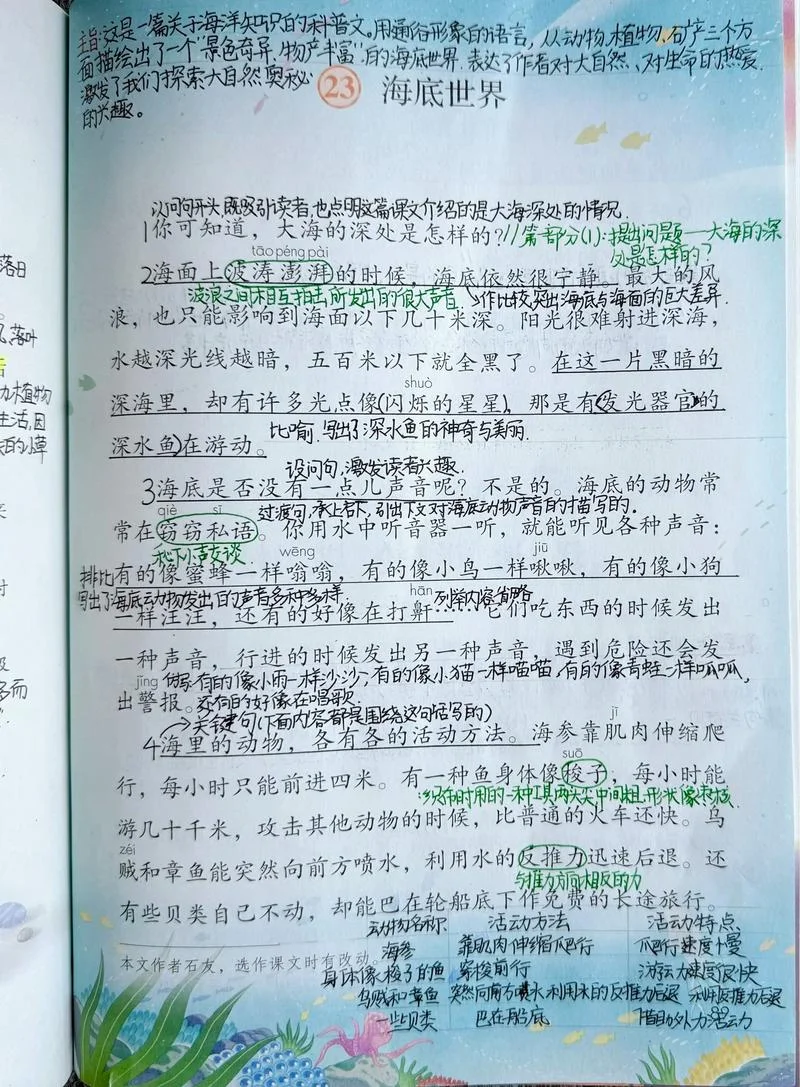 主旨:这是一篇关于海洋知识的科普文。用通俗形象的语言,从动物、植物、矿产三个方
面描绘出了一个“景色奇异,物产丰富”的海底世界,表达了作者对大自然、对生命的热爱,
激发了我们探索大自然奥秘
的兴趣。
23 海底世界
以问句开头,既吸引读者,也点明这篇课文介绍的是大海深处的情况。
1你可知道,大海的深处是怎样的?//第一部分(1):提出问题——大海的深
处是怎样的?
tāo péng pài
2海面上波涛澎湃的时候,海底依然很宁静。最大的风
波浪之间相互拍击,所发出的很大声音。作比较,突出海底与海面的巨大差异
浪,也只能影响到海面以下几十米深。阳光很难射进深海,
水越深光线越暗,五百米以下就全黑了。在这一片黑暗的
shuò
深海里,却有许多光点像(闪烁的星星),那是有(发光器官的
比喻,写出了深水鱼的神奇与美丽.
深水鱼)在游动。
设问句,激发读者兴趣.
3海底是否没有一点儿声音呢?不是的。海底的动物常
qiè sī
过渡句,承上启下,引出下文对海底动物声音的描写的.
常在窃窃私语。你用水中听音器一听,就能听见各种声音:
私下小声交谈
wēng jiū
排比有的像蜜蜂一样嗡嗡,有的像小鸟一样啾啾,有的像小狗
写出了海底动物发出的声音多种多样.
hān 列举内容省略
一样汪汪,还有的好像在打鼾……它们吃东西的时候发出
一种声音,行进的时候发出另一种声音,遇到危险还会发
jǐng 仿写:有的像小雨一样沙沙,有的像小猫一样喵喵,有的像青蛙一样呱呱,
出警报。还有的好像在唱歌
→关键句(下面内容都是围绕这句话写的)
jī
4海里的动物,各有各的活动方法。海参靠肌肉伸缩爬
suō
行,每小时只能前进四米。有一种鱼身体像梭子,每小时能
织布时用的一种工具,两头尖,中间粗,形状像枣核.
游几十千米,攻击其他动物的时候,比普通的火车还快。乌
zéi
贼和章鱼能突然向前方喷水,利用水的反推力迅速后退。还
与推力方向相反的力
有些贝类自己不动,却能巴在轮船底下作免费的长途旅行。
动物名称 活动方法 活动特点
海参 靠肌肉伸缩爬行 爬行速度慢
本文作者石友,选作课文时有改动。
身体像梭子的鱼 穿梭前行 游动速度很快
乌贼和章鱼 突然向前方喷水,利用水的反推力后退 利用反推力后退
一些贝类 巴在船底 借助外力活动
落日
落叶
植物
生活,因
的小草
多而